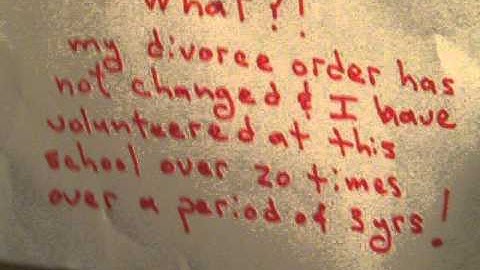 What?!
my divorce order has
not changed & I have
voluntuered at this
school over 20 times
over a period of 3yrs!